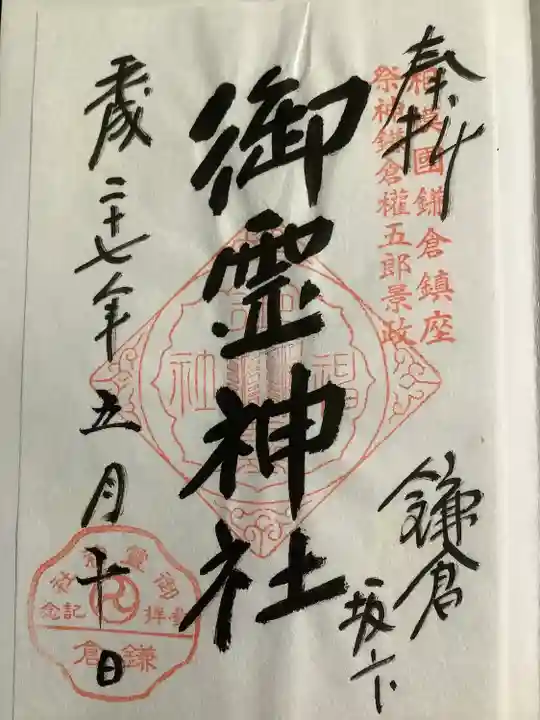 奉拝
相模國鎌倉鎮座
祭神鎌倉權五郎景政
鎌倉
坂ノ下
御霊神社
平成二十七年五月十日
御霊神社
参拝記念
鎌倉